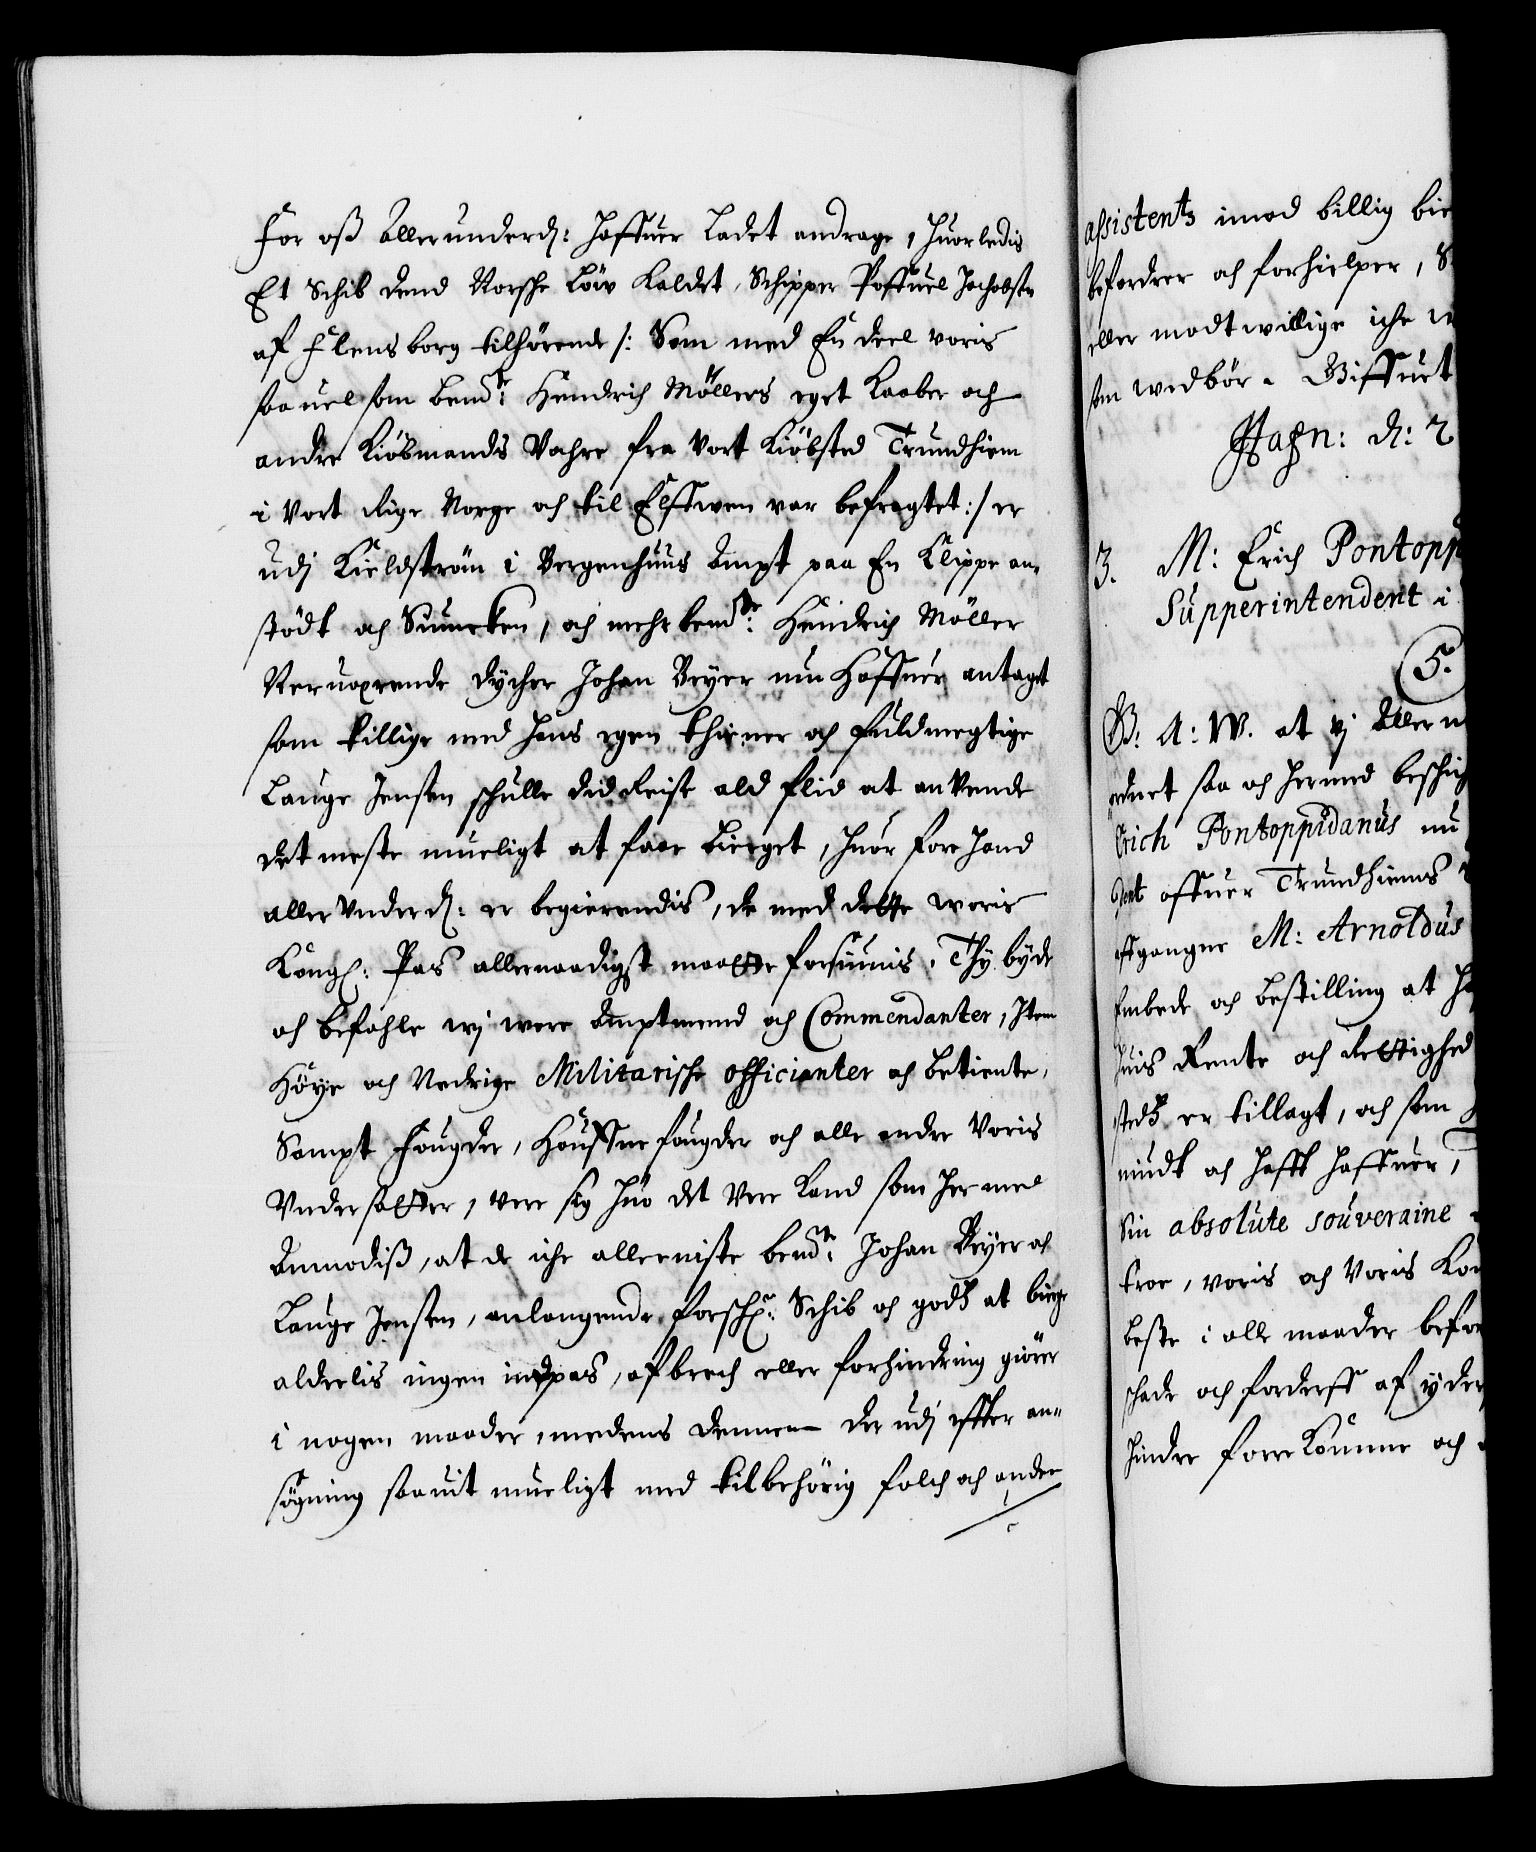 For oss Allerunderd: Haffuer Ladet andrage, huorledis
Et Schib dend Norsche Löw kaldet, Schipper Poffuel Jachobsen
af Flensborg tilhörende /: Som med En deel voris
saauelsom bemte: Hendrich Möllers eget Kaaber och
andre Kiöbmands Vahre fra Vort Kiöbsted Trundhiem
i Vort Rige Norge och til Elffwen var befragtet :/ er
udj Kieldström i Bergenhuus Ampt paa En Klippe an-
stödt och Suncken, och mehrbemte: Hendrich Möller
Neruaerende Dycher Johan Beyer nu Haffuer antaget
som tillige med hans egen thiener och fuldmegtige
Lauge Jensen schulle did Reise ald flid at anVende
det meste mueligt at faae Bierget, huor fore hand
aller Underd: er begierendis, de med dette woris
Kongl: Pas allernaadigst maatte forsiunis. Thj byde
och befahle wj wore Amptmend och Commendanter, Item
Höye och Nedrige Militarische Officianter och betiente,
Sampt Fougder, Houffue fougder och alle andre Voris
Undersatter, vere sig huo det Vere Kand som her med
Anmodiss, at de iche alleeniste bemte: Johan Beyer och
Lauge Jensen, anlangende forschr: Schib och godz at bierge
alderlis ingen indpas, afbrech eller forhindring giörer
i nogen maader, medens dennem der udj effter an-
sögning saauit mueligt med tilbehörig folch och anden
assistents imod billig
befordrer och forhielper,
eller modtwillige iche
som wedbör. Giffuet
Hafn: d: 2
3. M: Erich Pontopp
Supperintendent i
5.
G: A: W. at vj Aller
ordnet saa och hermed beschich
Erich Pontoppidanus nu
dent offuer Trundhiems
affgangne M: Arnoldus
Embede och bestilling at
huis Rente och Rettighed
stedz er tillagt, och som
niudt och hafft haffuer,
Sin absolute souveraine
troe, voris och Voris
beste i alle maader
schade och forderff af yder
hindre forrekomme och